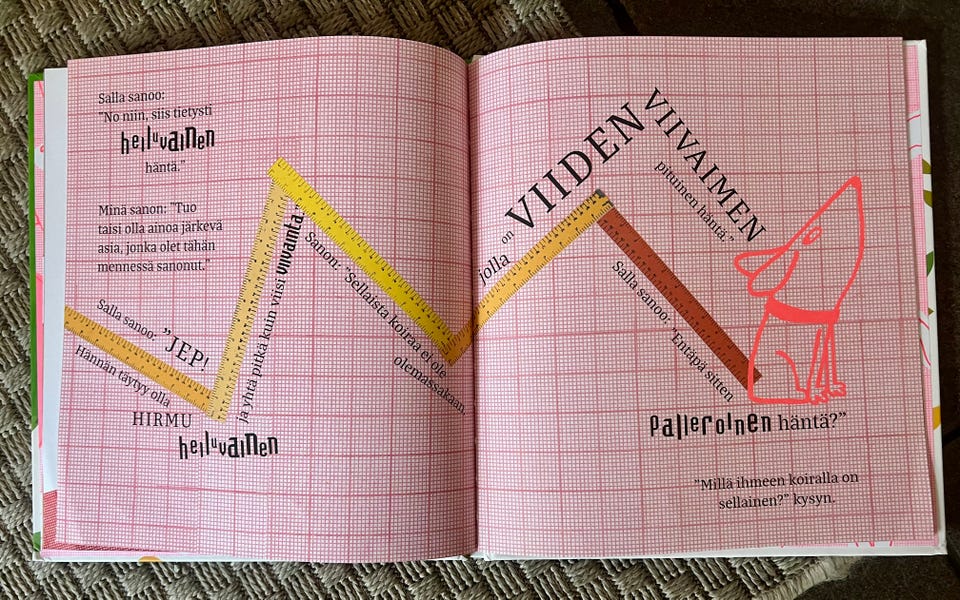 Salla sanoo:
"No niin, siis tietysti
heiluvainen
häntä."
Minä sanon: "Tuo
taisi olla ainoa järkevä
asia, jonka olet tähän
mennessä sanonut."
Salla sanoo: "JEP!
Hännän täytyy olla
HIRMU
heiluvainen
ja yhtä pitkä kuin viisi viivainta."
Sanon: "Sellaista koiraa ei ole
olemassakaan,
jolla
on VIIDEN
VIIVAIMEN
pituinen häntä."
Salla sanoo: "Entäpä sitten
palleroinen häntä?"
"Millä ihmeen koiralla on
sellainen?" kysyn.